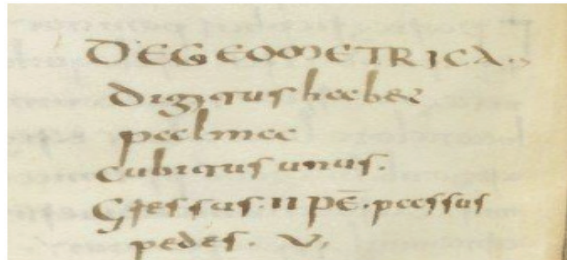 DE GEOMETRICA.,
Digitus habet
palmac
cubitus unus.
Gressus. II PĒ. passus
pedes. V,